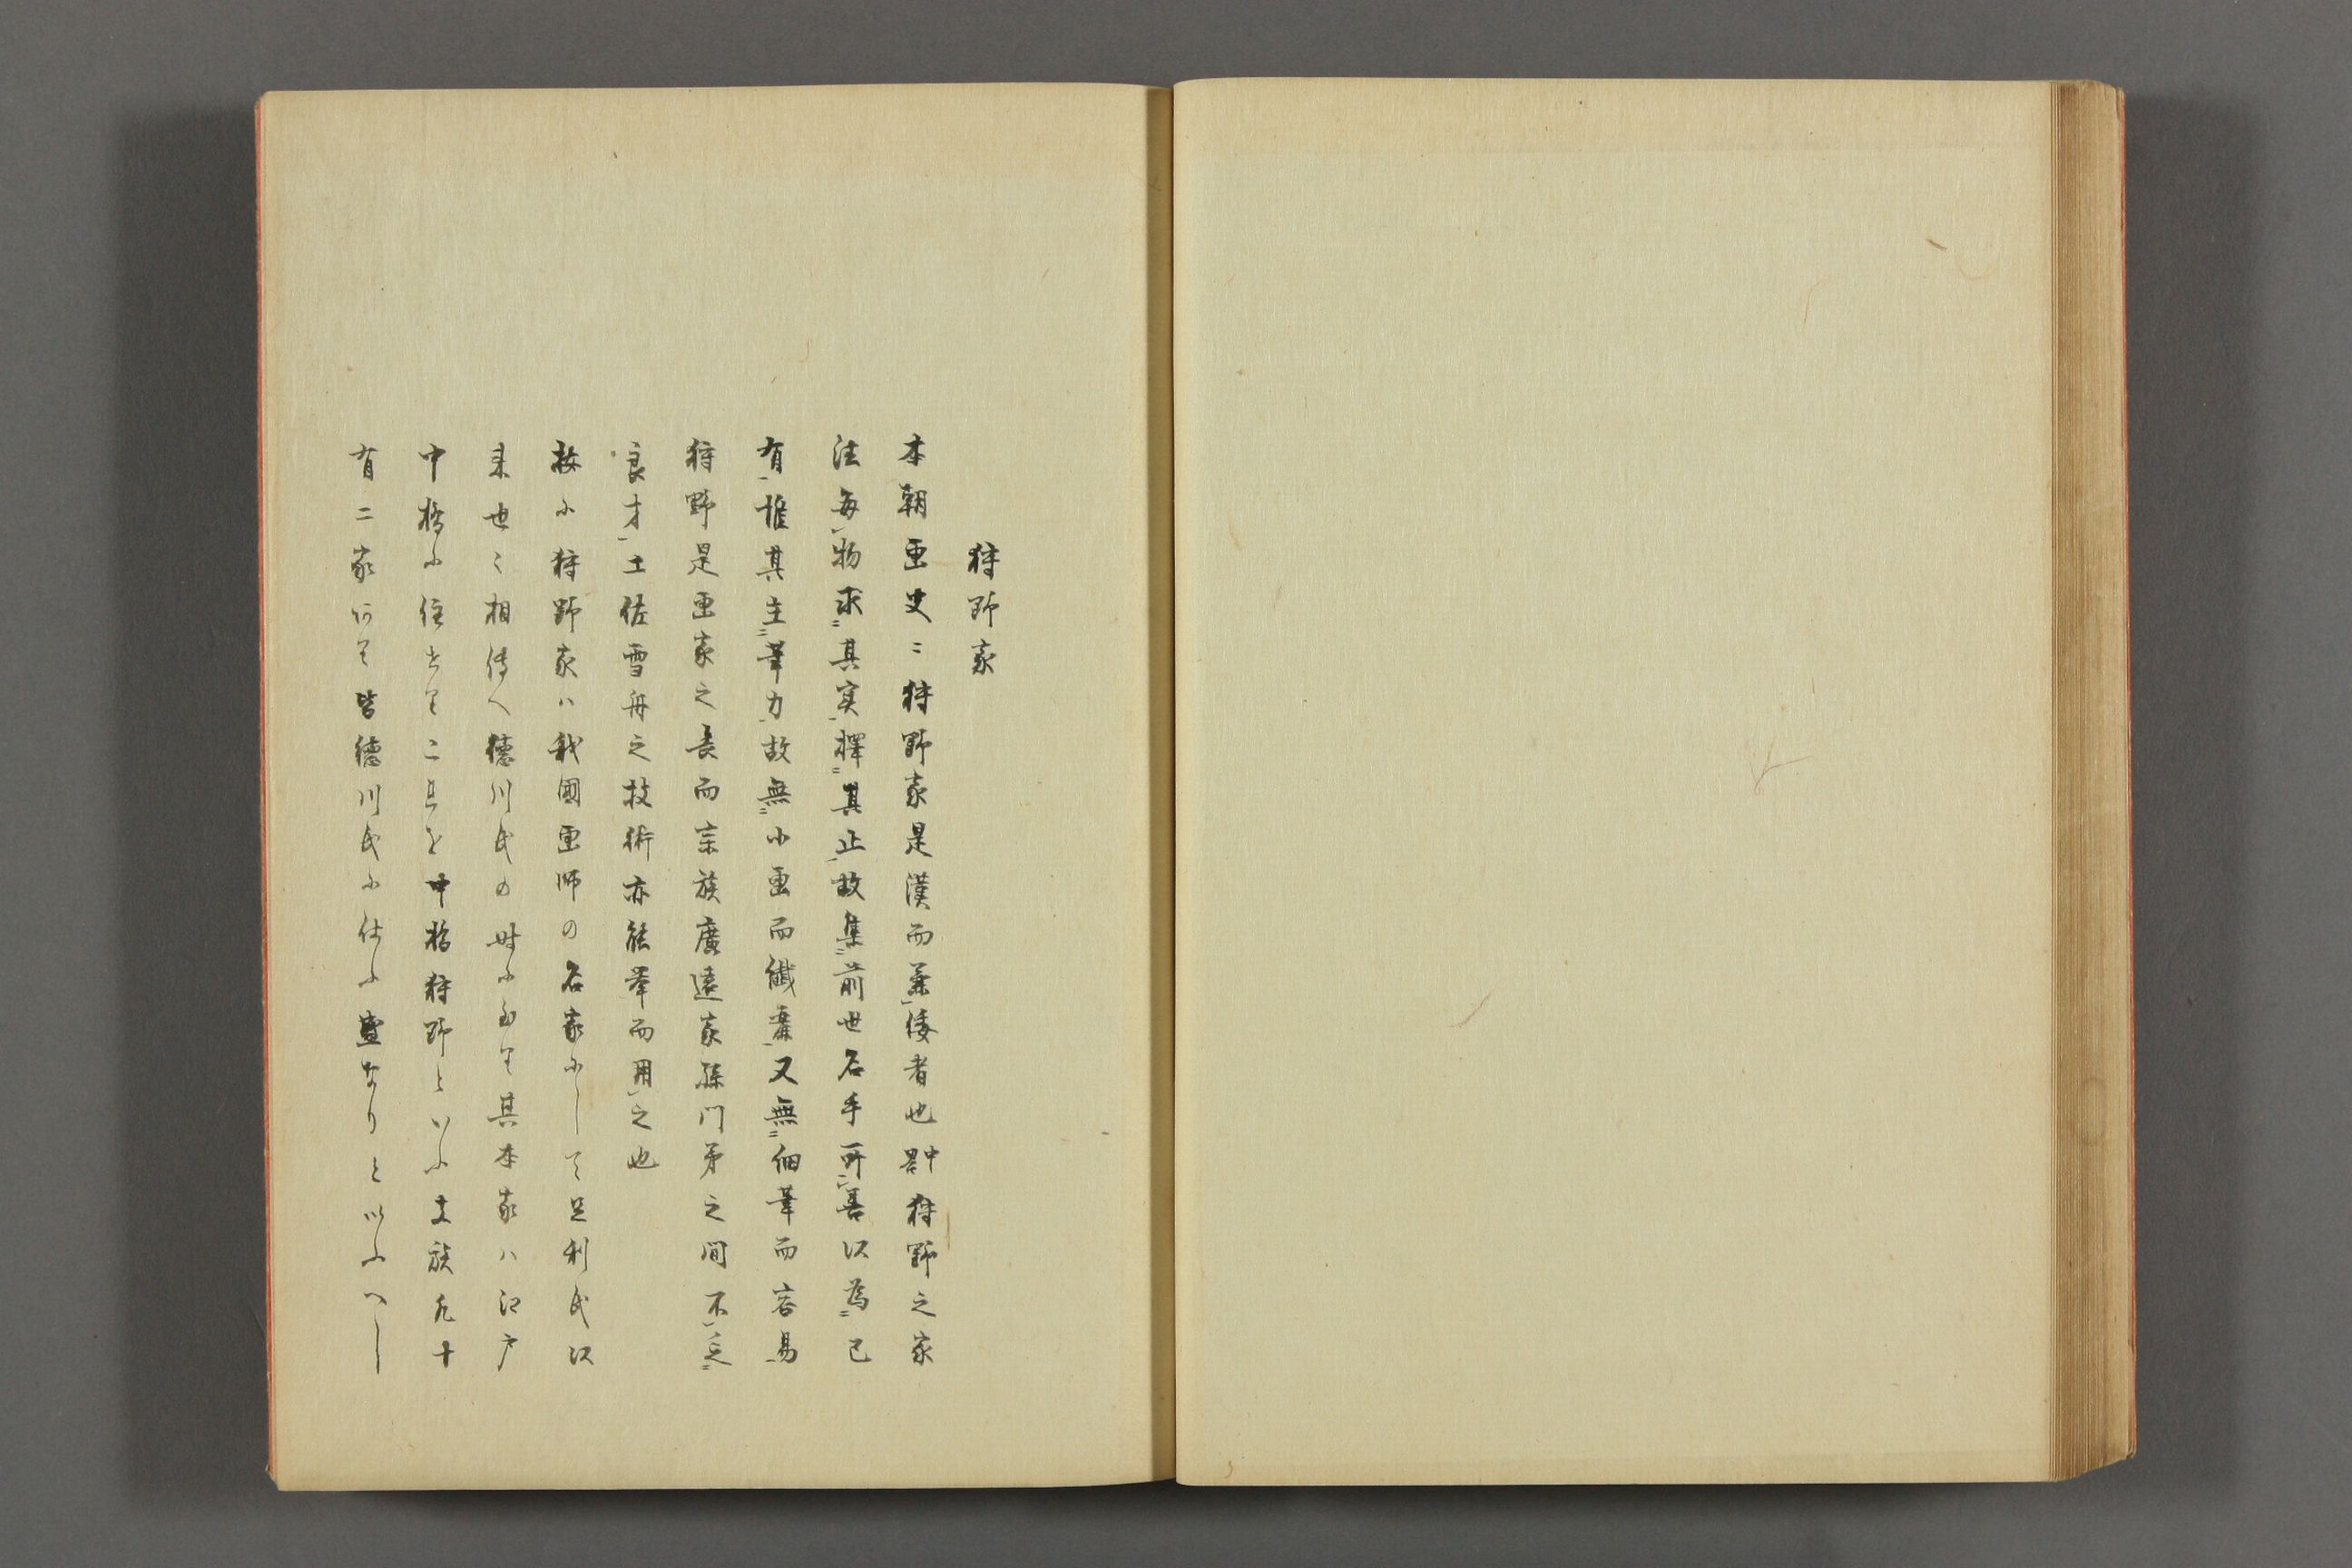 狩野家
本朝画史ニ狩野家是漢而兼倭者也畧中狩野之家
法毎物求其実擇其止故集前世名手所善以為己
有惟其主筆力故無小画而纎麁又無細筆而容易
狩野是画家之長而宗族廣遠家孫門弟之間不乏
良才土佐雪舟之技術亦能挙而用之也
按に狩野家ハ我國画師の名家にして足利氏以
来世々相傳へ徳川氏の時に至りて其本家ハ江戸
中橋に住せり これを中橋狩野といふ支族凡十
有二家ありて皆徳川氏に仕ふ盛なりと以ふへし